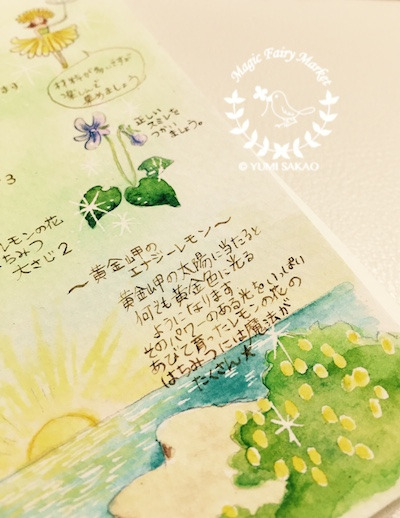 材料が多いですが
楽しんで
集めましょう
正しい
スミレを
つかい
ましょう。
Magic Fairy Market
© YUMI SAKAO
レモンの花
はちみつ
大さじ2
〜黄金岬の
エナジーレモン〜
黄金岬の太陽に当たると
何でも黄金色に光る
ようになります
そのパワーのある光をいっぱい
あびて育ったレモンの花の
はちみつには魔法が
たくさん★